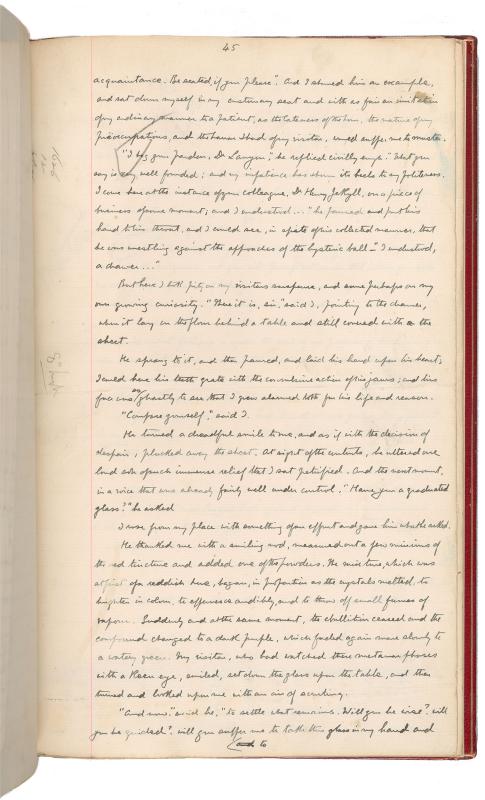 45
acquaintance. Be seated, if you please". And I showed him an example,
and sat down myself in my customary seat and with as fair an imitation
of my ordinary manner to a patient, as the lateness of the hour, the nature of my
preoccupations, and the horror I had of my visitor, would suffer me to muster.
"I beg your pardon, Dr Lanyon," he replied civilly enough. "What you
say is very well founded; and my impatience has shown its heels to my politeness.
I come here at the instance of your colleague, Dr Henry Jekyll, on a piece of
business of some moment; and I understood..." he paused and put his
hand to his throat, and I could see, in spite of his collected manner, that
he was wrestling against the approaches of the hysteric ball – "I understood,
a drawer..."
But here I took pity on my visitor's suspense, and some perhaps on my
own growing curiosity. "There it is, sir," said I, pointing to the drawer,
where it lay on the floor behind a table and still covered with the
sheet.
He sprang to it, and then paused, and laid his hand upon his heart;
I could hear his teeth grate with the convulsive action of his jaws; and his
face was so ghastly to see that I grew alarmed both for his life and reason.
"Compose yourself," said I.
He turned a dreadful smile to me, and as if with the decision of
despair, plucked away the sheet. At sight of the contents, he uttered one
loud sob of such immense relief that I sat petrified. And the next moment,
in a voice that was already fairly well under control, "Have you a graduated
glass?" he asked
I rose from my place with something of an effort and gave him what he asked.
He thanked me with a smiling nod, measured out a few minims of
the red tincture and added one of the powders. The mixture, which was
at first of a reddish hue, began, in proportion as the crystals melted, to
brighten in colour, to effervesce audibly, and to throw off small fumes of
vapour. Suddenly and at the same moment, the ebullition ceased and the
compound changed to a dark purple, which faded again more slowly to
a watery green. My visitor, who had watched these metamorphoses
with a keen eye, smiled, set down the glass upon the table, and then
turned and looked upon me with an air of scrutiny.
"And now," said he, "to settle what remains. Will you be wise? will
you be guided? will you suffer me to take this glass in my hand and
and to